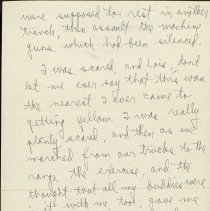 were supposed to rest in another
trench, then assault the machine
guns which had been silenced.
I was scared, and Lois, don't
let me ever say that this was
the nearest I ever came to
getting yellow. I was really
plenty scared, and then as we
marched from our trucks to the
range the exercise, and the
thought that all my buddies were
in it with me too, gave me